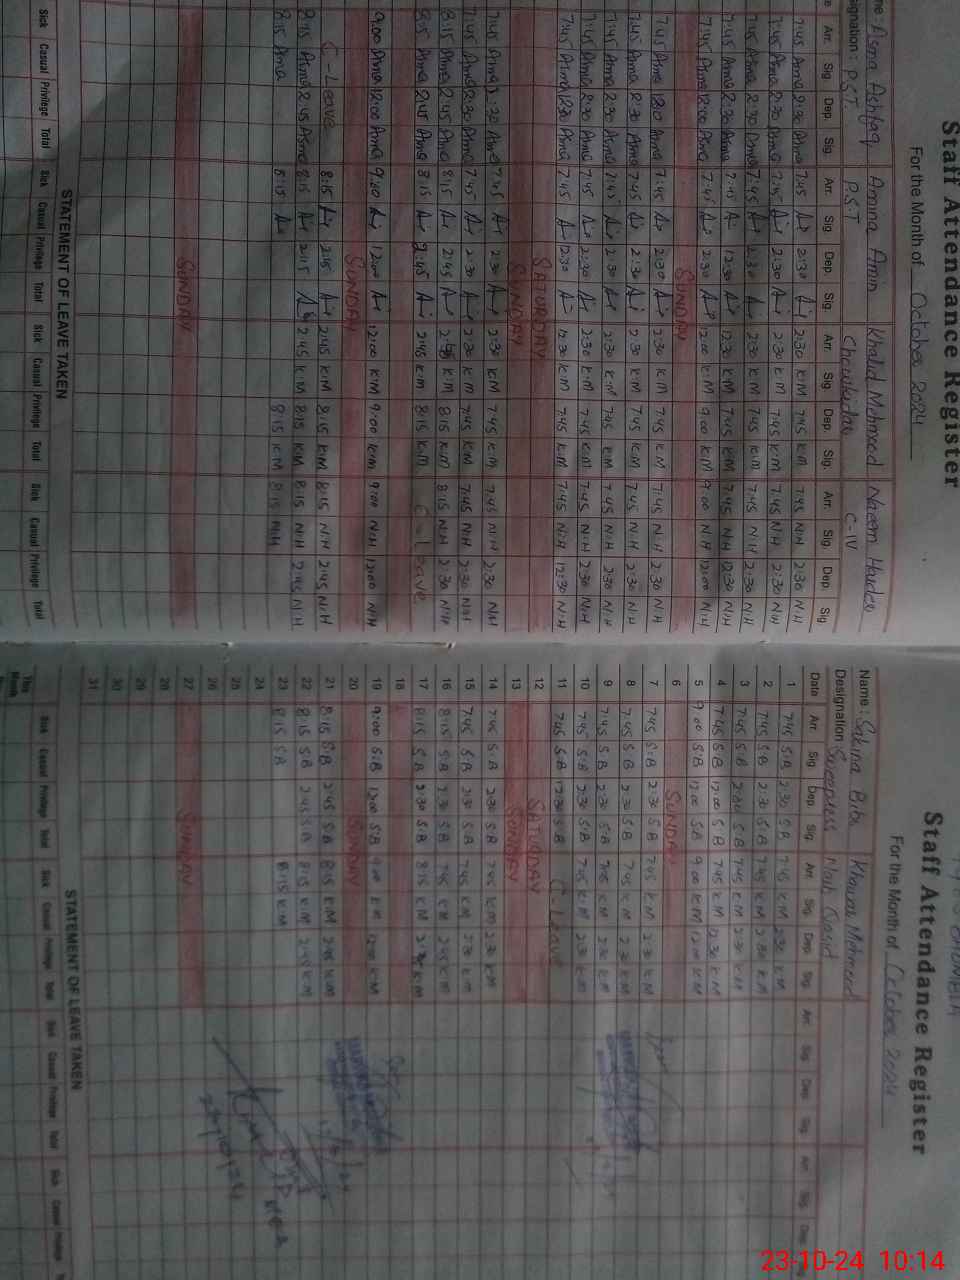 Staff Attendance Register
For the Month of October 2024
me: Asma Ashfaq Amina Amin Khalid Mehmood Naeem Haider
signation: P.S.T P.S.T Chowkidar C-IV
Arr. Sig. Dep. Sig. Arr. Sig. Dep. Sig. Arr. Sig. Dep. Sig. Arr. Sig. Dep. Sig.
7:45 Asma 2:30 Asma 7:45 2:30 2:30 K.M 7:45 K.M 7:45 N.H 2:30 N.H
7:45 Asma 2:30 Asma 7:45 2:30 2:30 K.M 7:45 K.M 7:45 N.H 2:30 N.H
7:45 Asma 2:30 Asma 7:45 2:30 2:30 K.M 7:45 K.M 7:45 N.H 2:30 N.H
7:45 Asma 2:30 Asma 7:45 12:30 12:30 K.M 7:45 K.M 7:45 N.H 12:30 N.H
7:45 Asma 12:00 Asma 7:45 2:30 12:00 K.M 9:00 K.M 9:00 N.H 12:00 N.H
SUNDAY
7:45 Asma Asma 7:45 2:30 2:30 K.M 7:45 K.M 7:45 N.H 2:30 N.H
7:45 Asma 2:30 Asma 7:45 2:30 2:30 K.M 7:45 K.M 7:45 N.H 2:30 N.H
7:45 Asma 2:30 Asma 7:45 2:30 2:30 K.M 7:45 K.M 7:45 N.H 2:30 N.H
7:45 Asma 2:30 Asma 7:45 2:30 2:30 K.M 7:45 K.M 7:45 N.H 2:30 N.H
7:45 Asma 12:30 Asma 7:45 12:30 12:30 K.M 7:45 K.M 7:45 N.H 12:30 N.H
SATURDAY
SUNDAY
7:45 Asma Asma 7:45 2:30 2:30 K.M 7:45 K.M 7:45 N.H 2:30 N.H
7:45 Asma 2:30 Asma 7:45 2:30 2:30 K.M 7:45 K.M 7:45 N.H 2:30 N.H
8:15 Asma 2:45 Asma 8:15 2:45 K.M 8:15 K.M 8:15 N.H 2:30 N.H
8:15 Asma 2:45 Asma 8:15 2:45 2:45 K.M 8:15 K.M C-Leave
9:00 Asma 12:00 Asma 9:00 12:00 12:00 K.M 9:00 K.M 9:00 N.H 12:00 N.H
SUNDAY
C-Leave 8:15 2:45 2:45 K.M 8:15 K.M 8:15 N.H 2:45 N.H
8:15 Asma 2:45 Asma 8:15 2:45 K.M 8:15 K.M 8:15 N.H 2:45 N.H
8:15 Asma 8:15 8:15 K.M 8:15 N.H
SUNDAY
STATEMENT OF LEAVE TAKEN
Sick Casual Privilege Total Sick Casual Privilege Total Sick Casual Privilege Total Sick Casual Privilege Total
Staff Attendance Register
For the Month of October 2024
Name: Sakina Bibi Khawar Mehmood
Designation Sweepress Naib Qasid
Date Arr. Sig. Dep. Sig. Arr. Sig. Dep. Sig. Arr. Sig. Dep. Sig. Arr. Sig. Dep. Sig.
1 7:45 S.B 2:30 S.B 7:45 K.M 2:30 K.M
2 7:45 S.B 2:30 S.B 7:45 K.M 2:30 K.M
3 7:45 S.B 2:30 S.B 7:45 K.M 2:30 K.M
4 7:45 S.B 12:00 S.B 7:45 K.M 12:30 K.M
5 9:00 S.B 12:00 S.B 9:00 K.M 12:00 K.M
6 SUNDAY
7 7:45 S.B 2:30 S.B 7:45 K.M 2:30 K.M
8 7:45 S.B 2:30 S.B 7:45 K.M 2:30 K.M
9 7:45 S.B 2:30 S.B 7:45 K.M 2:30 K.M
10 7:45 S.B 2:30 S.B 7:45 K.M 2:30 K.M
11 7:45 S.B 12:30 S.B C-Leave
12 SATURDAY
13 SUNDAY
14 7:45 S.B 2:30 S.B 7:45 K.M 2:30 K.M
15 7:45 S.B 2:30 S.B 7:45 K.M 2:30 K.M
16 8:15 S.B 2:30 S.B 7:45 K.M 2:45 K.M
17 8:15 S.B 2:30 S.B 8:15 K.M 2:30 K.M
18
19 9:00 S.B 12:00 S.B 9:00 K.M 12:00 K.M
20 SUNDAY
21 8:15 S.B 2:45 S.B 8:15 K.M 2:45 K.M
22 8:15 S.B 2:45 S.B 8:15 K.M 2:45 K.M
23 8:15 S.B 8:15 K.M
24
25
26
27 SUNDAY
28
29
30
31
STATEMENT OF LEAVE TAKEN
Sick Casual Privilege Total Sick Casual Privilege Total Sick Casual Privilege Total Sick Casual Privilege
This Month
23-10-24 10:14